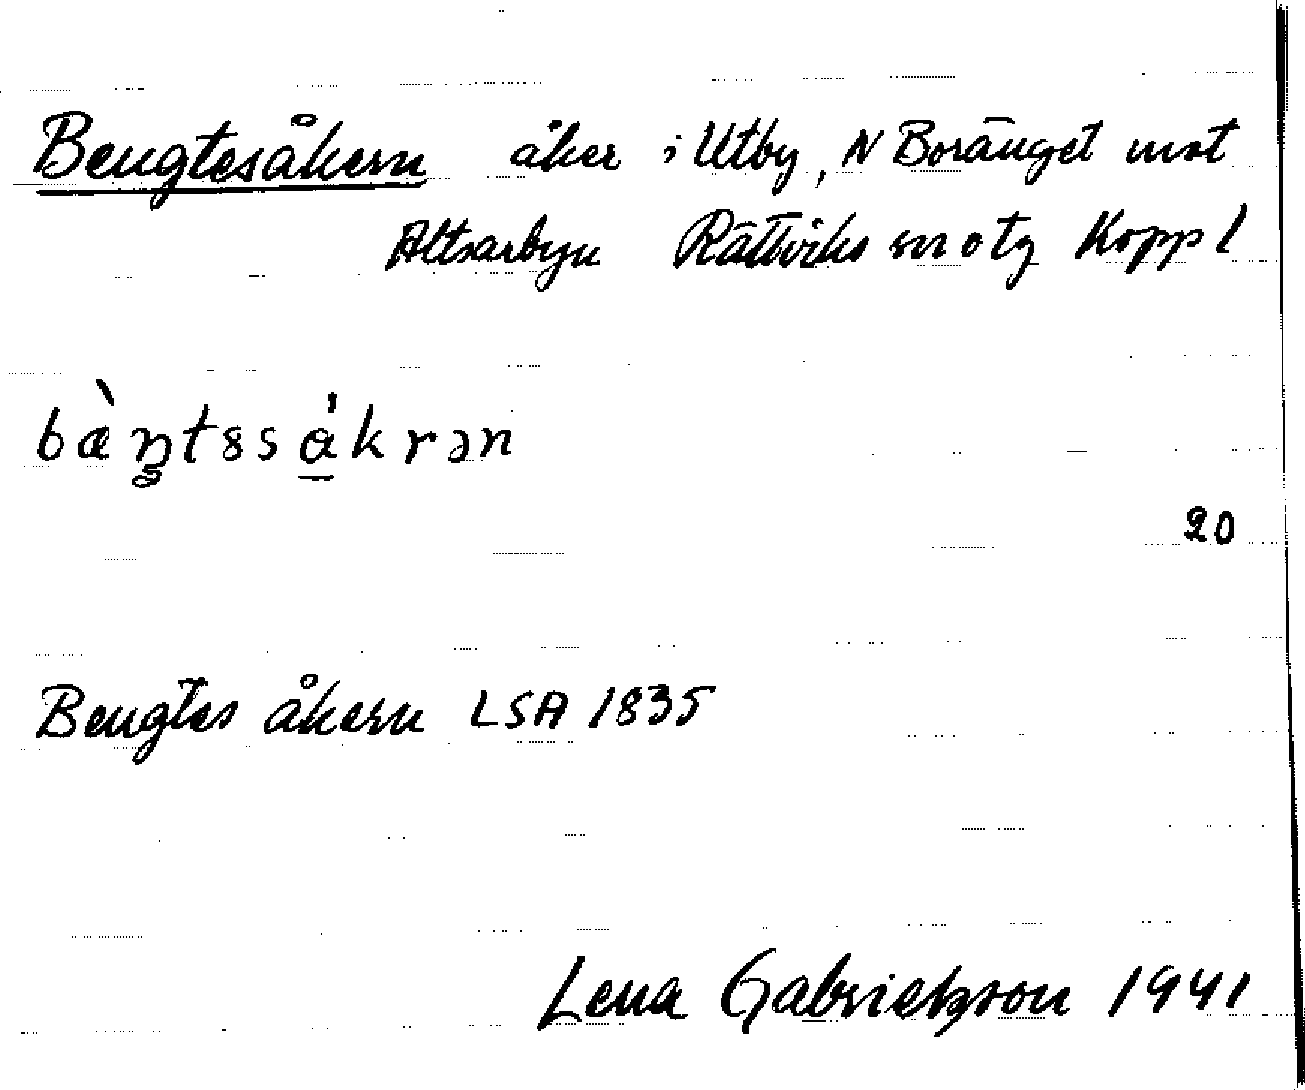 Bengtesåkern åker i Utby, N Boränget mot
Altsarbyn Rättviks sn o tg Kopp l
bæ̀ŋtssákrən
20
Bengtes åkern LSA 1835
Lena Gabrielsson 1941